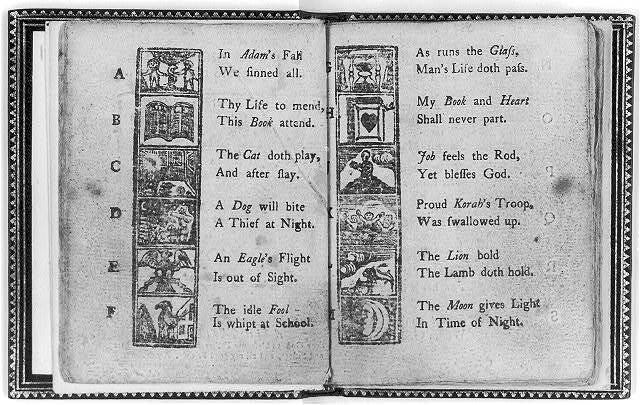 A
In Adam's Fall
We ſinned all.
B
Thy Life to mend,
This Book attend.
C
The Cat doth play,
And after ſlay.
D
A Dog will bite
A Thief at Night.
E
An Eagle's Flight
Is out of Sight.
F
The idle Fool
Is whipt at School.
G
As runs the Glaſs,
Man's Life doth paſs.
H
My Book and Heart
Shall never part.
Job feels the Rod,
Yet bleſſes God.
Proud Korah's Troop,
Was ſwallowed up.
The Lion bold
The Lamb doth hold.
The Moon gives Light
In Time of Night.